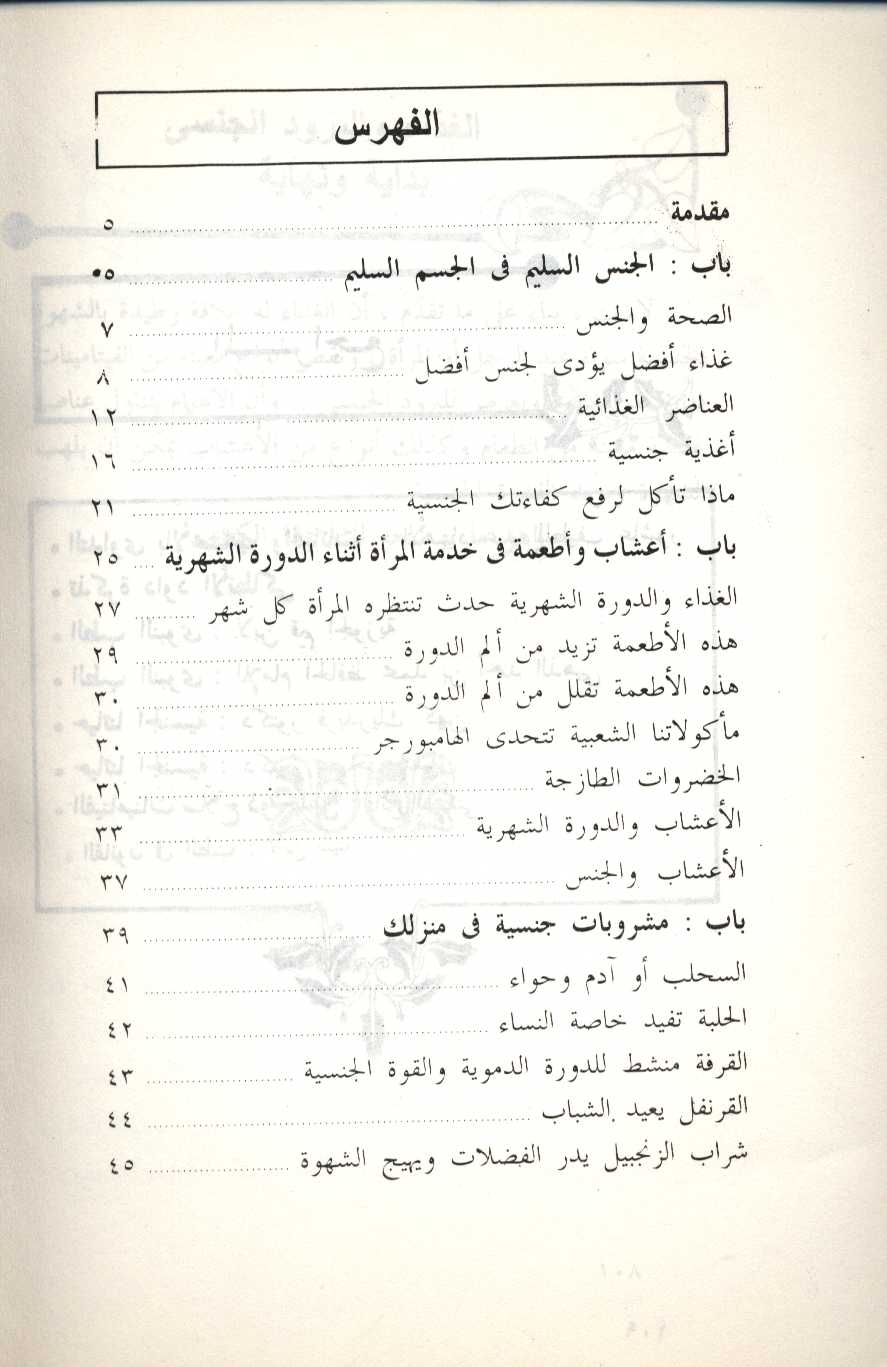 الفهرس
مقدمة ........ ٥
باب : الجنس السليم فى الجسم السليم ........ ٥
الصحة والجنس ........ ٧
غذاء أفضل يؤدى لجنس أفضل ........ ٨
العناضر الغذائية ........ ١٢
أغذية جنسية ........ ١٦
ماذا تأكل لرفع كفاءتك الجنسية ........ ٢١
باب : أعشاب وأطعمة فى خدمة المرأة أثناء الدورة الشهرية .... ٢٥
الغذاء والدورة الشهرية حدث تنتظره المرأة كل شهر ........ ٢٧
هذه الأطعمة تزيد من ألم الدورة ........ ٢٩
هذه الأطعمة تقلل من ألم الدورة ........ ٣٠
مأكولاتنا الشعبية تتحدى الهامبورجر ........ ٣٠
الخضروات الطازجة ........ ٣١
الأعشاب والدورة الشهرية ........ ٣٣
الأعشاب والجنس ........ ٣٧
باب : مشروبات جنسية فى منزلك ........ ٣٩
السحلب أو آدم وحواء ........ ٤١
الحلبة تفيد خاصة النساء ........ ٤٢
القرفة منشط للدورة الدموية والقوة الجنسية ........ ٤٣
القرنفل يعيد الشباب ........ ٤٤
شراب الزنجبيل يدر الفضلات ويهيج الشهوة ........ ٤٥